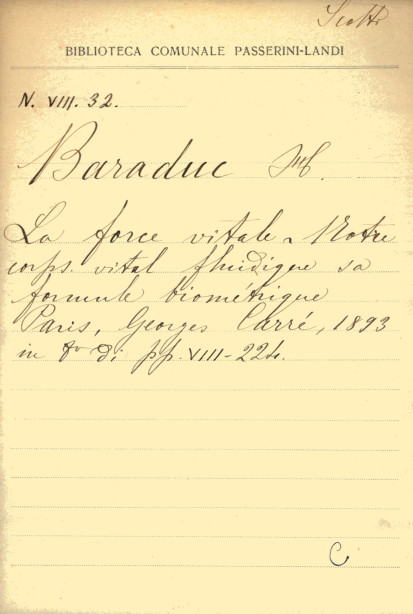 BIBLIOTECA COMUNALE PASSERINI-LANDI
N. VIII. 32.
Baraduc
La force vitale. Notre
corps vital fluidique sa
formule biométrique
Paris, Georges Carré, 1893
in 8° di pp. VIII-224.
C